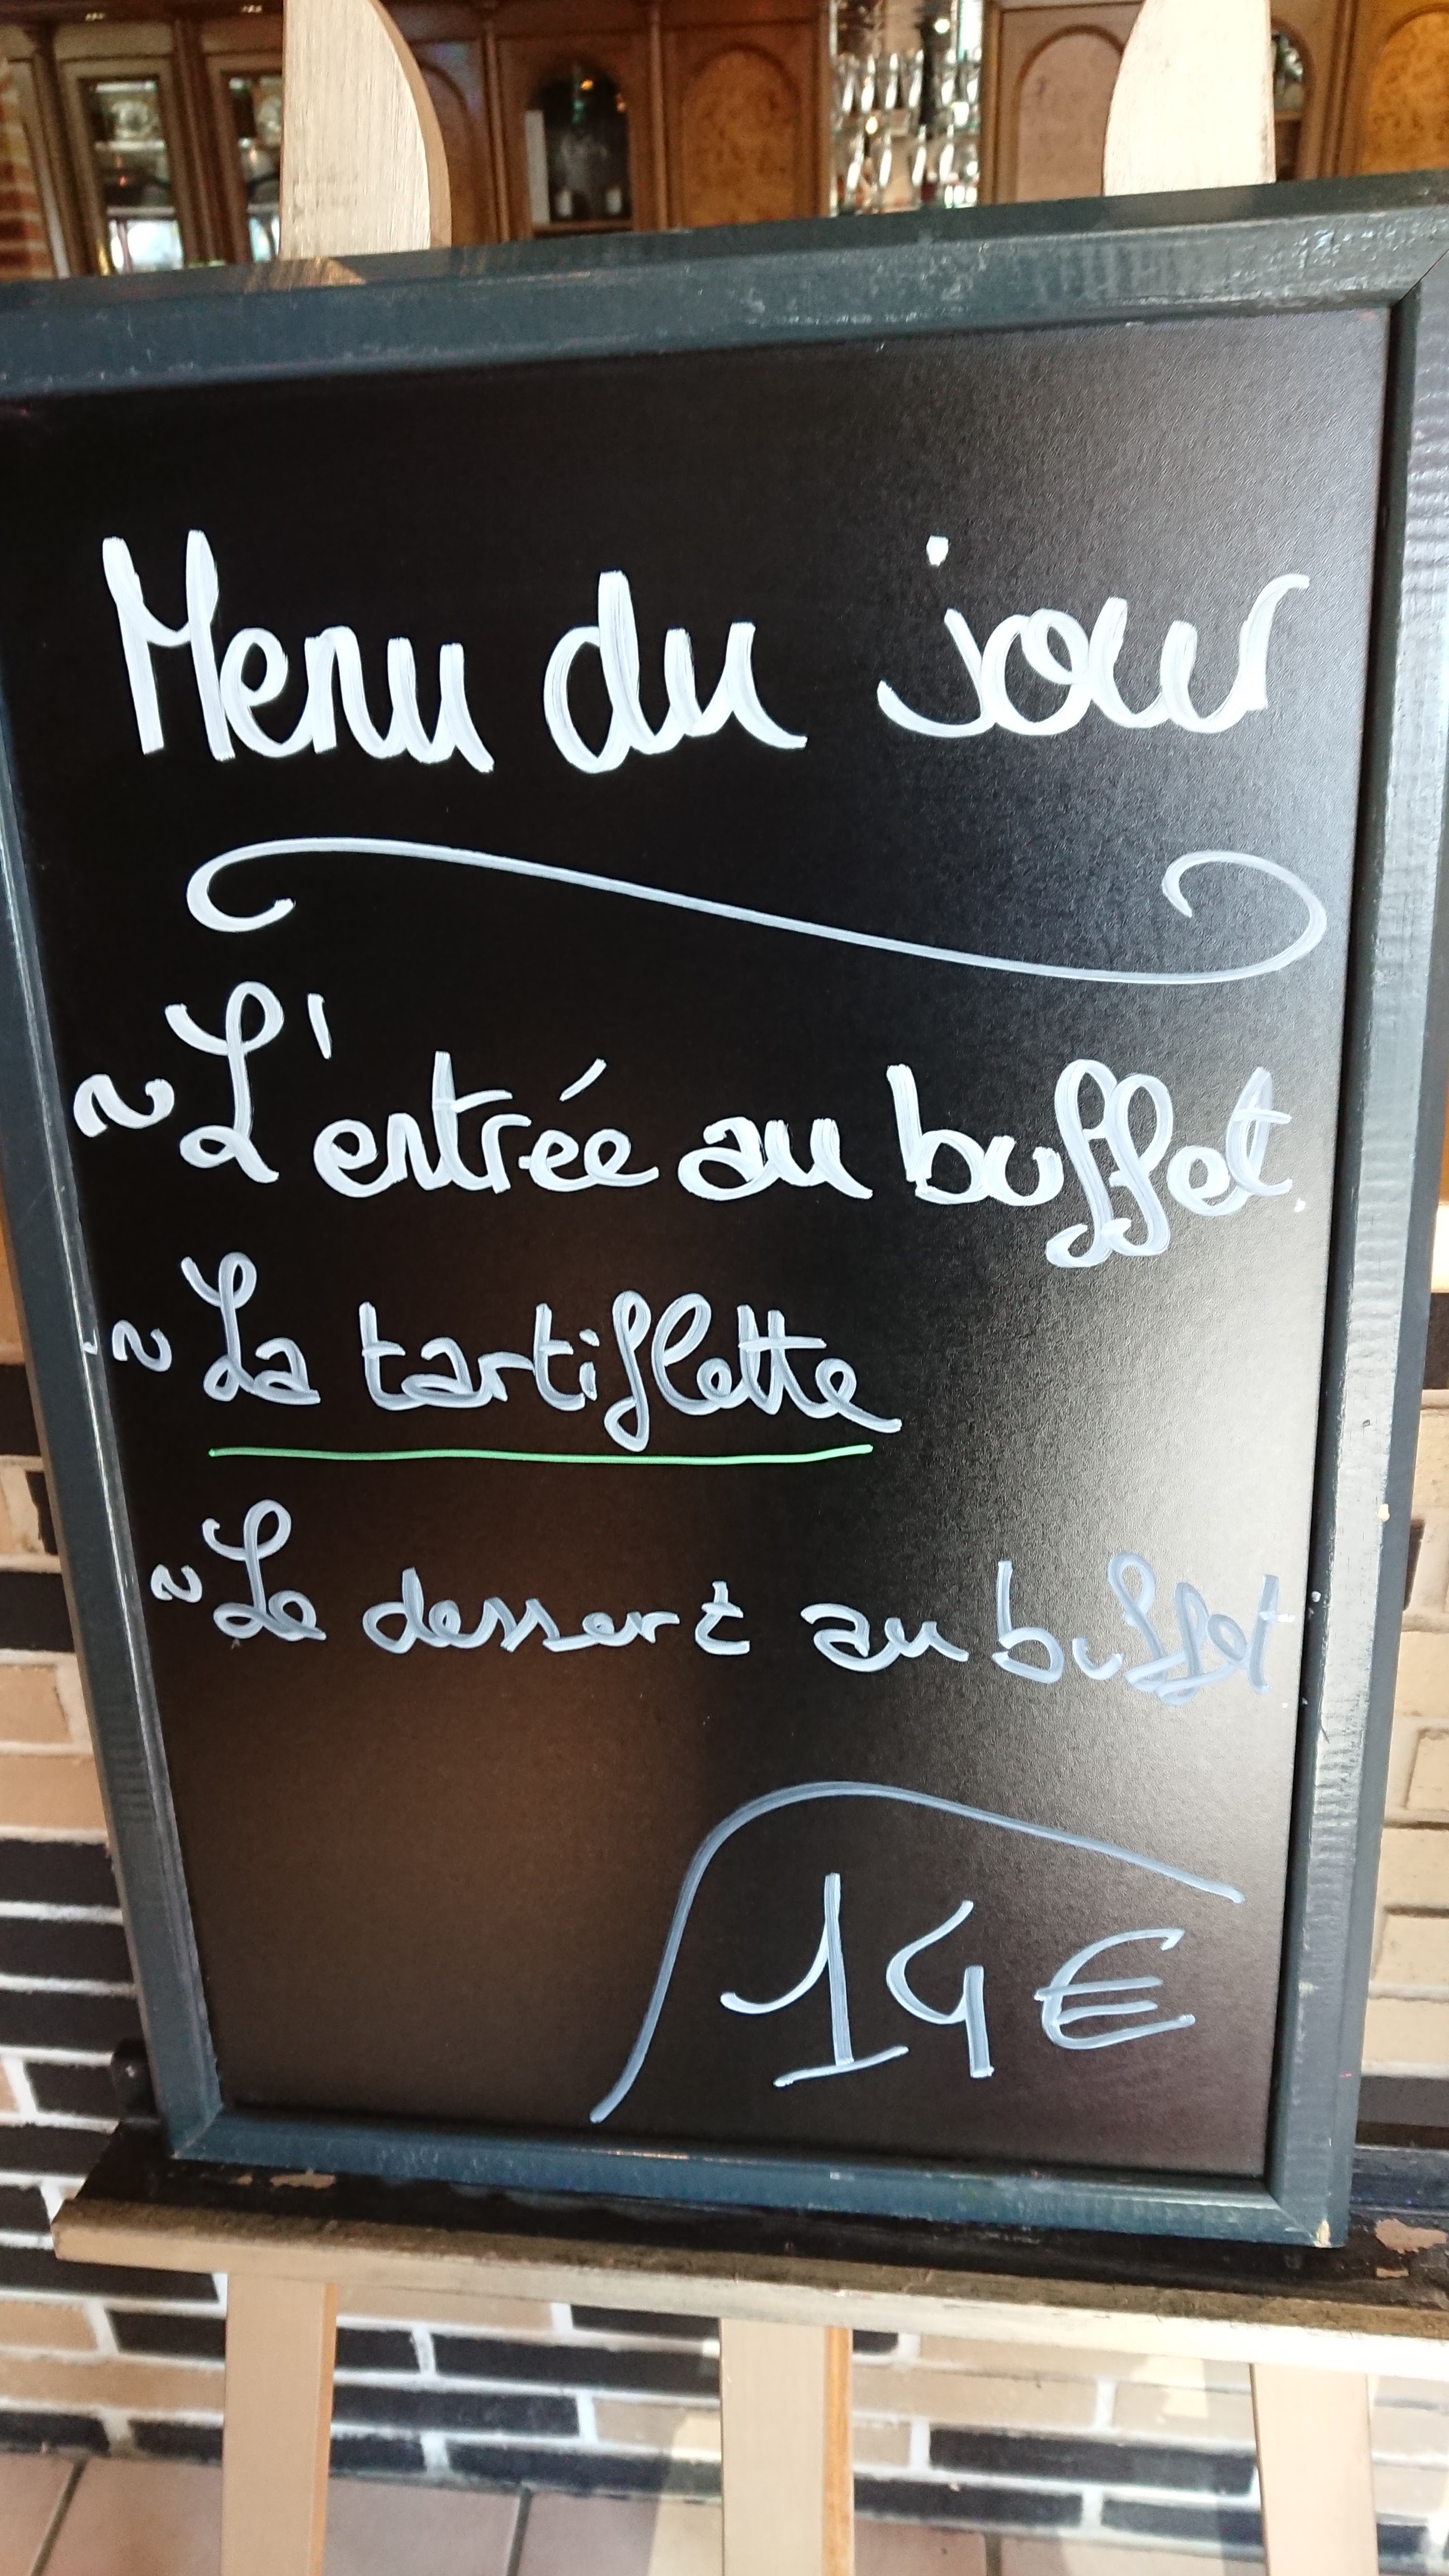 Menu du jour
~ L'entrée au buffet.
~ La tartiflette
~ Le dessert au buffet
14€